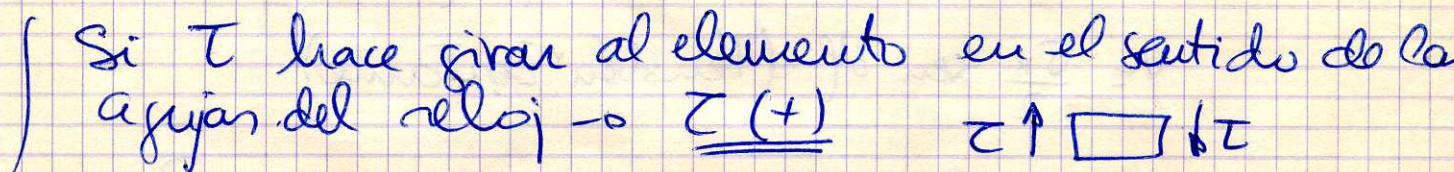 Si τ hace girar al elemento en el sentido de la
agujas del reloj → τ (+) τ↑ ↓τ